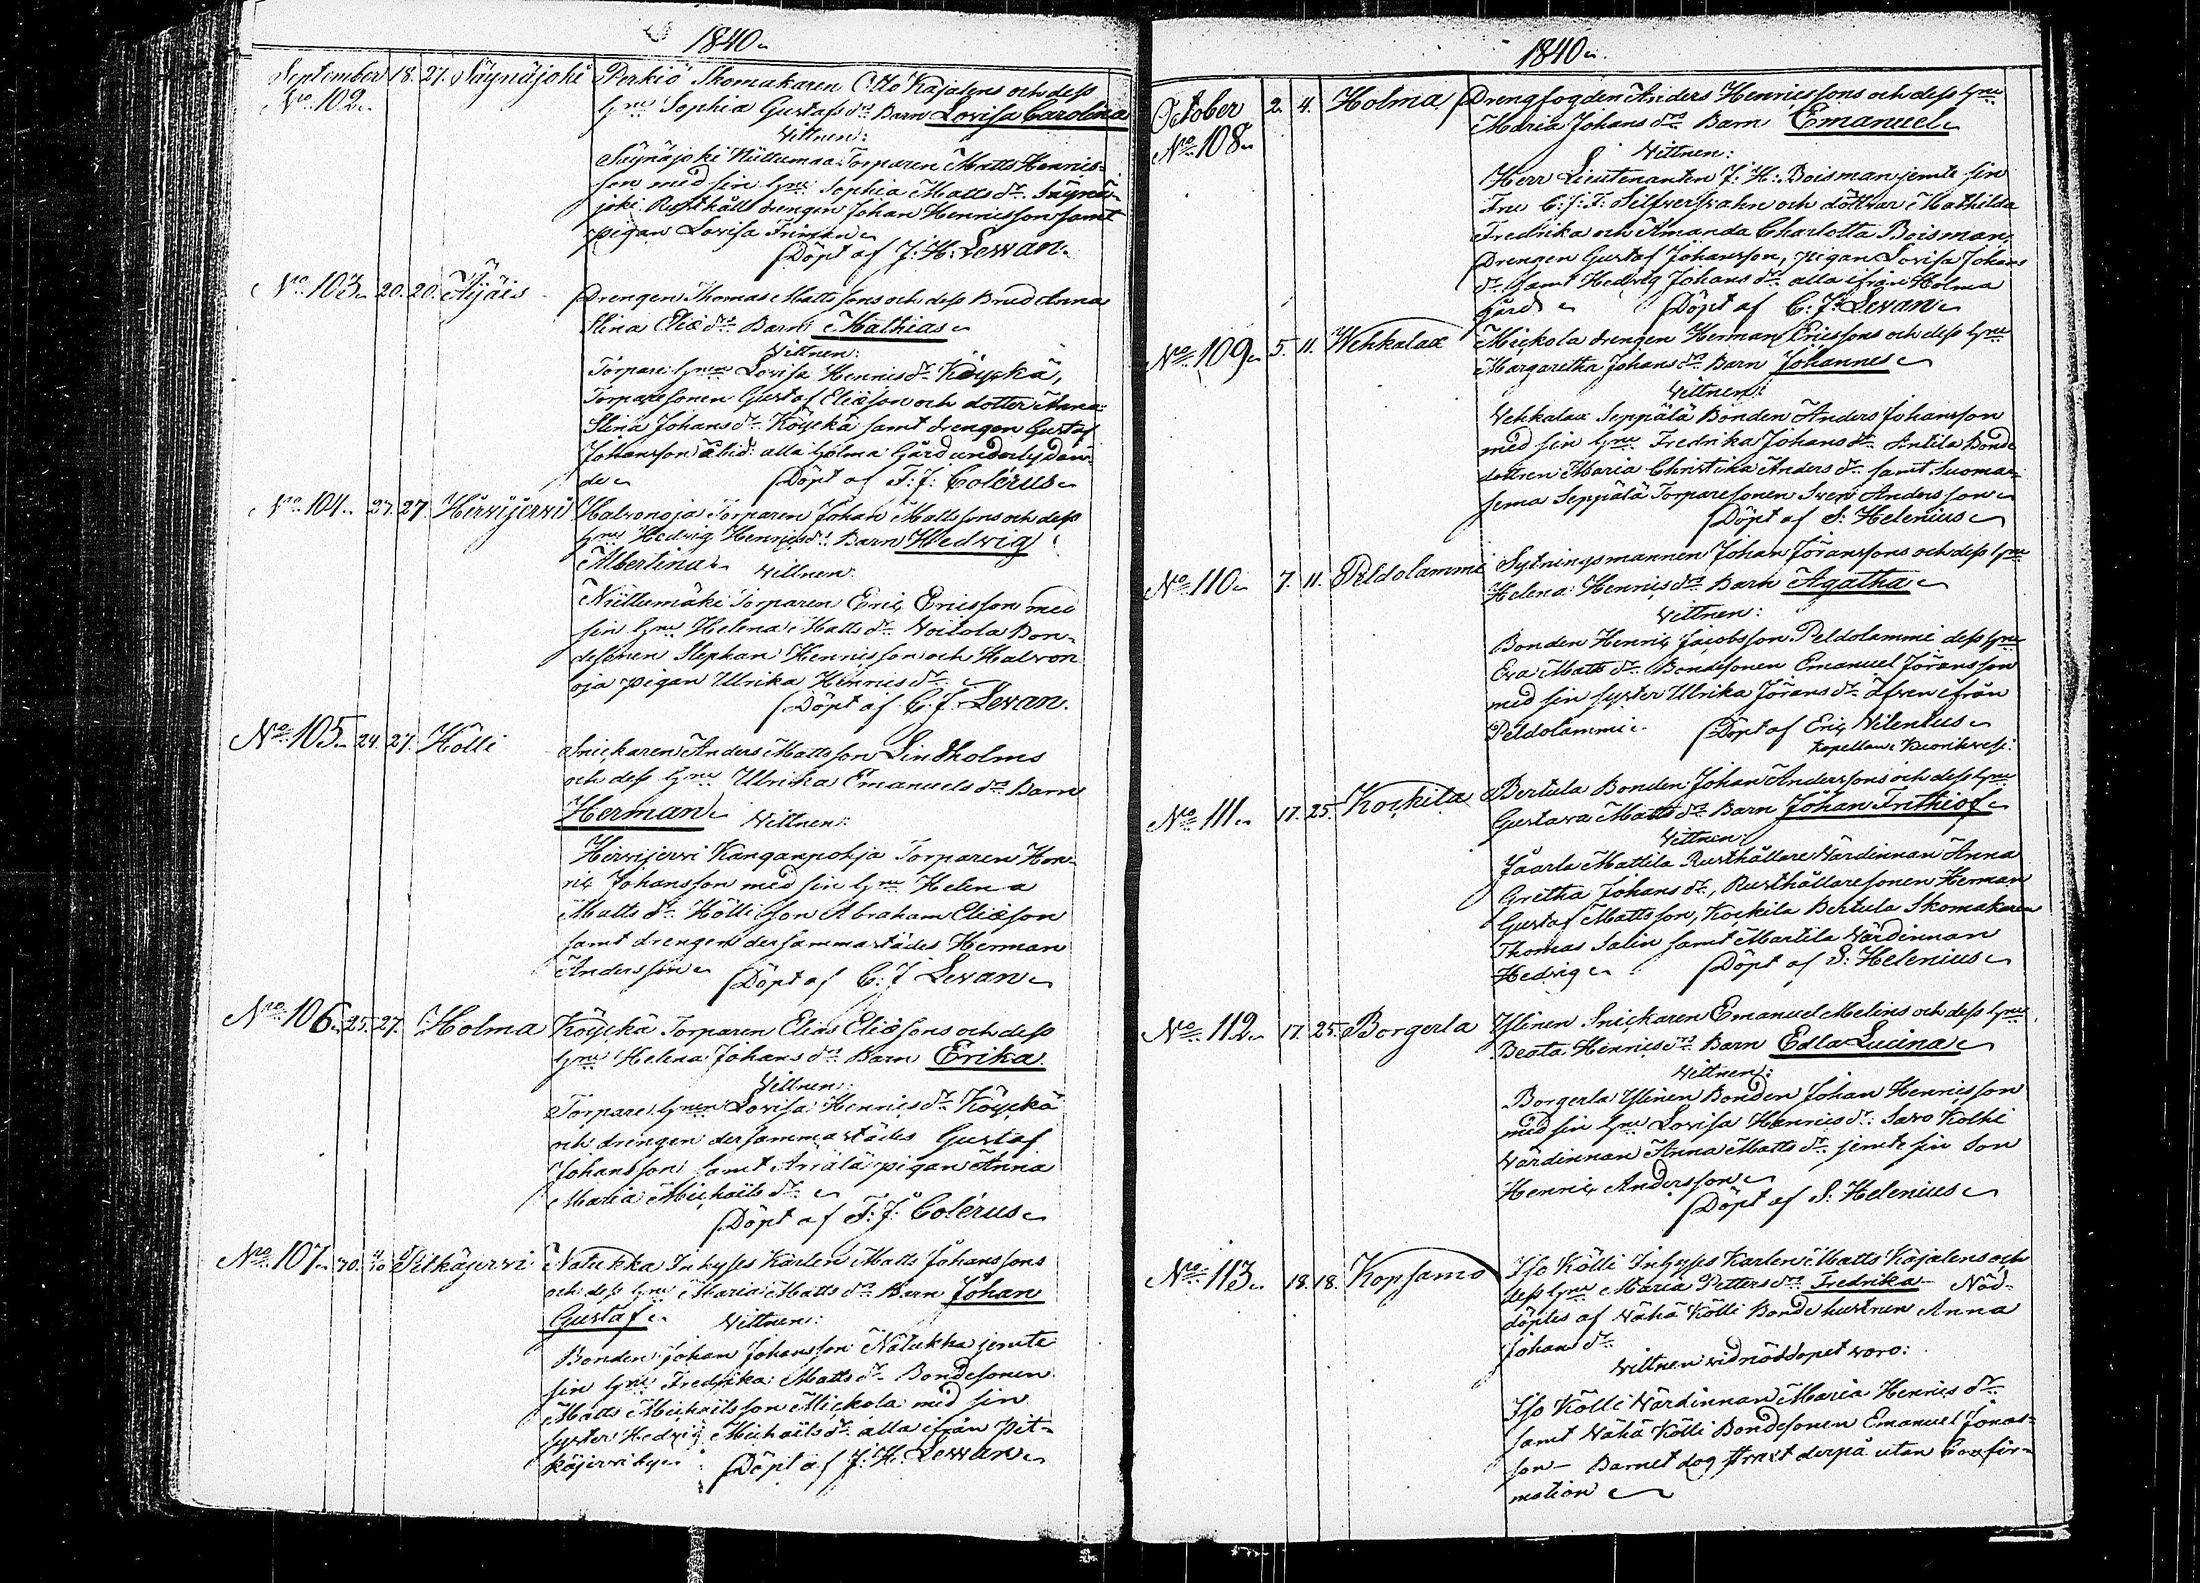 1840
September 18. 27. Säynäjoki Perkiö Skomakaren Otto Kajalens och dess
No 102. hru Sophia Gustafs dr Barn Lovisa Carolina
Vittnen:
Säynäjoki Niittumaa Torparen Matts Henrics-
son med sin hru Sophia Matts dr Säynä-
joki Rusthålls drengen Johan Henricsson samt
pigan Lovisa
Döpt af J: H: Levvan.
No 103. 20. 20. Äijäis Drengen Thomas Matts sons och dess Brud Anna
Stina Eliæ drs Barn Mathias
Vittnen:
Torpare hrun Lovisa Henrics dr Köyckä,
Torparesonen Gustaf Eliæson och dotter Anna
Stina Johans dr Köyckä samt drengen Gustaf
Johansson ibid: alla Holma Gård underlydan-
de Döpt af F: J: Colérus
No 104. 27. 27. Hirvijervi Halvonoja Torparen Johan Matts sons och dess
hru Hedvig Henrics drs Barn Hedvig
Albertina Vittnen:
Niittumäki Torparen Eric Ericsson med
sin hru Helena Matts dr Voitola Bon-
desonen Stephan Henricsson och Halvon
oja pigan Ulrika Henrics dr
Döpt af C. J. Levan.
No 105. 24. 27. Kölli Snickaren Anders Mattsson Lindholms
och dess hru Ulrika Emanuels drs Barn
Herman Vittnen:
Hirvijervi Kanganpohja Torparen Hen-
ric Johansson med sin hru Helena
Matts dr Kölli Son Abraham Eliæson
samt drengen dersammastädes Herman
Andersson Döpt af C. J Levan
No 106. 25. 27. Holma Köyckä Torparen Elias Eliæ sons och dess
hru Helena Johans drs Barn Erika.
Vittnen:
Torpare hrun Lovisa Henrics dr Köyckä
och drengen dersammastädes Gustaf
Johansson samt Ariälä pigan Anna
Maria Michaëls dr
Döpt af F: J: Colérus
No 107. 30. 4/10 Pitkäjervi Natukka Inhyses Karlen Matts Johanssons
och dess hru Maria Matts drs Barn Johan
Gustaf. Vittnen:
Bonden Johan Johansson Natukka jemte
sin hru Fredrika Matts dr Bondesonen
Matts Michaëlsson Mickola med sin
syster Hedvig Michaëls dr alla ifrån Pit-
käjervi by Döpt af J: H. Levvan
1840.
October 2. 4. Holma Drengfogden Anders Henricssons och dess hru
No 108. Maria Johans drs Barn Emanuel
Vittnen:
Herr Lieutenanten J: H: Boisman jemte sin
Fru C: J: F: Silfversvahn och döttrar Mathilda
Fredrika och Amanda Charlotta Boisman,
Drengen Gustaf Johansson, pigan Lovisa Johans
dr samt Hedvig Johans dr alla ifrån Holma
gård Döpt af C. J. Levan
No 109. 5. 11. Wehkalax Mickola drengen Herman Ericssons och dess hru
Margaretha Johans drs Barn Johannes
Vittnen:
Vehkalax Seppälä Bonden Anders Johansson
med sin hru Fredrika Johans dr Antila Bonde
dottren Maria Christina Anders dr samt Suomas-
sema Seppälä Torparesonen Sven Andersson
Döpt af S: Helenius
No 110. 7. 11. Peldolammi Sytningsmannen Johan Jöranssons och dess hru
Helena Henrics drs Barn Agatha
Vittnen:
Bonden Henric Jacobsson Peldolammi dess hru
Eva Matts dr Bondesonen Emanuel Jöransson
med sin syster Ulrika Jörans dr äfven ifrån
Peldolammi. Döpt af Eric Vilenius
Kapellan
No 111. 17. 25. Kockila Bertula Bonden Johan Anderssons och dess hru
Gustava Matts drs Barn Johan Frithiof
Vittnen:
Jåarla Mattila Rusthållare Värdinnan Anna
Gretha Johans dr, Rusthållaresonen Herman
Gustaf Mattsson, Kockila Bertula Skomakaren
Thomas Salin samt Martila Värdinnan
Hedvig Döpt af S: Helenius
No 112. 17. 25. Borgerla Ylinen Snickaren Emanuel Melens och dess hru
Beata Henrics drs Barn Edla Lucina
Vittnen:
Borgerla Ylinen Bonden Johan Henricsson
med sin hru Lovisa Henrics dr Savo Kolhi
Värdinnan Anna Matts dr jemte sin Son
Henric Andersson
Döpt af S: Helenius
No 113. 18. 18. Kopsamo Iso Kölli Inhyses Karlen Matts Kajalens och
dess hru Maria Petters drs Fredrika – Nöd-
döptes af Vähä Kölli Bonde hustrun Anna
Johans dr
Vittnen vid nöddopet voro:
Iso Kölli Värdinnan Maria Henrics dr
samt Vähä Kölli Bondesonen Emanuel Jonas-
son – Barnet dog straxt derpå utan Confir-
mation